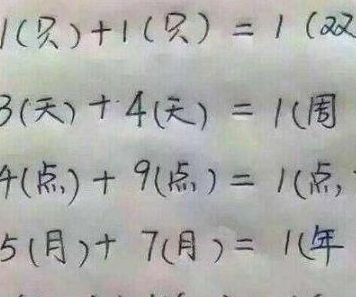 1(只)+1(只)=1(双
3(天)+4(天)=1(周
4(点)+9(点)=1(点,
5(月)+7(月)=1(年